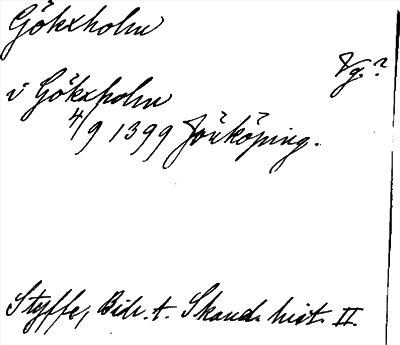 Gökxholm
Vg.?
i Gökxholm
4/9 1399 Jönköping.
Styffe, Bidr. t. Skand. hist. II.